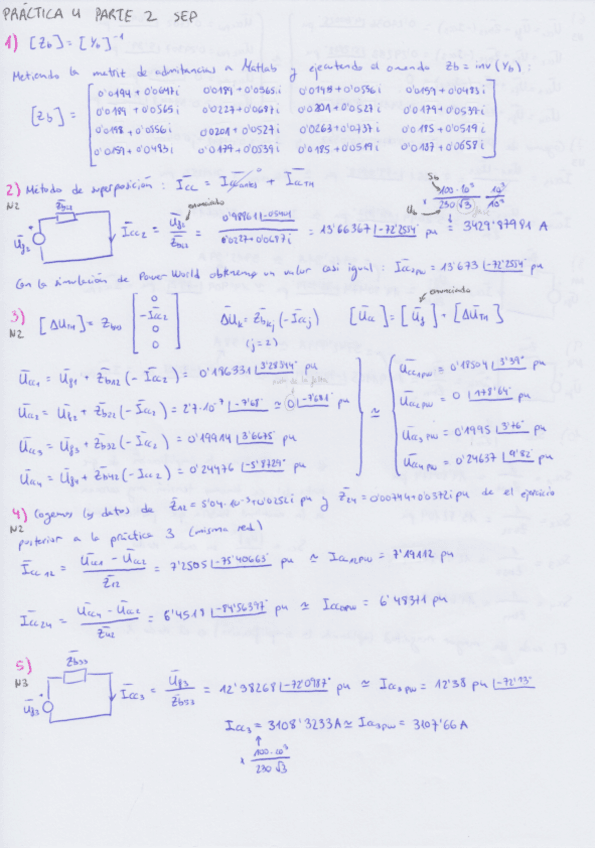 PRÁCTICA 4 PARTE 2 SEP
1) [Zb] = [Yb]⁻¹
Metiendo la matriz de admitancias a Matlab y ejecutando el comando Zb = inv(Yb):
[Zb] =
0'0194 + 0'0647i 0'0189 + 0'0565i 0'0198 + 0'0556i 0'0159 + 0'0483i
0'0189 + 0'0565i 0'0227 + 0'0687i 0'0201 + 0'0527i 0'0179 + 0'0539i
0'0198 + 0'0556i 0'0201 + 0'0527i 0'0263 + 0'0737i 0'0185 + 0'0519i
0'0159 + 0'0483i 0'0179 + 0'0539i 0'0185 + 0'0519i 0'0187 + 0'0658i
2) Método de superposición: Icc = Iccantes + IccTH
N2
Zb22
Ug2
Icc2 = Ug2 / Zb22 = / 0'0227 + 0'0687i = 13'66367 |-72'2554° pu = 3429'87981 A
enunciado
Sb
x 100·10³ / 230√3
Ub
Con la simulación de Power World obtenemos un valor casi igual: Icc2pw = 13'673 |-72'2554° pu
enunciado
3) [ΔUTH] = Zbus [0 -Icc2 0 0] ΔUk = Zbkj (-Iccj) [Ucc] = [Ug] + [ΔUTH]
N2
(j = 2)
Ucc1 = Ug1 + Zb12 (-Icc2) = 0'186331 |3'28344° pu
Ucc1pw = 0'18504 |3'39°
Ucc2 = Ug2 + Zb22 (-Icc2) = 2'7·10⁻⁷ |-7'68° ≃ 0 |-7'681° pu
Ucc2pw = 0 |178'64°
Ucc3 = Ug3 + Zb32 (-Icc2) = 0'19914 |3'6675° pu
Ucc3pw = 0'1995 |3'76°
Ucc4 = Ug4 + Zb42 (-Icc2) = 0'24476 |-5'8729° pu
Ucc4pw = 0'24637 |9'82° pu
4) Cogemos los datos de Z12 = 5'04·10⁻³ + 0'025i pu y Z24 = 0'00744 + 0'0372i pu de el ejercicio
N2
posterior a la práctica 3 (misma red)
Icc12 = Ucc1 - Ucc2 / Z12 = 7'2505 |-75'40663° pu ≃ Icc12pw = 7'19112 pu
Icc24 = Ucc4 - Ucc2 / Z42 = 6'4518 |-84'56397° pu ≃ = 6'48371 pu
5)
N3
Zb33
Ug3
Icc3 = Ug3 / Zb33 = 12'38268 |-72'0987° pu ≃ Icc3pw = 12'38 |-72'13°
Icc3 = 3108'3233 A ≃ Icc3pw = 3107'66 A
x 100·10³ / 230√3